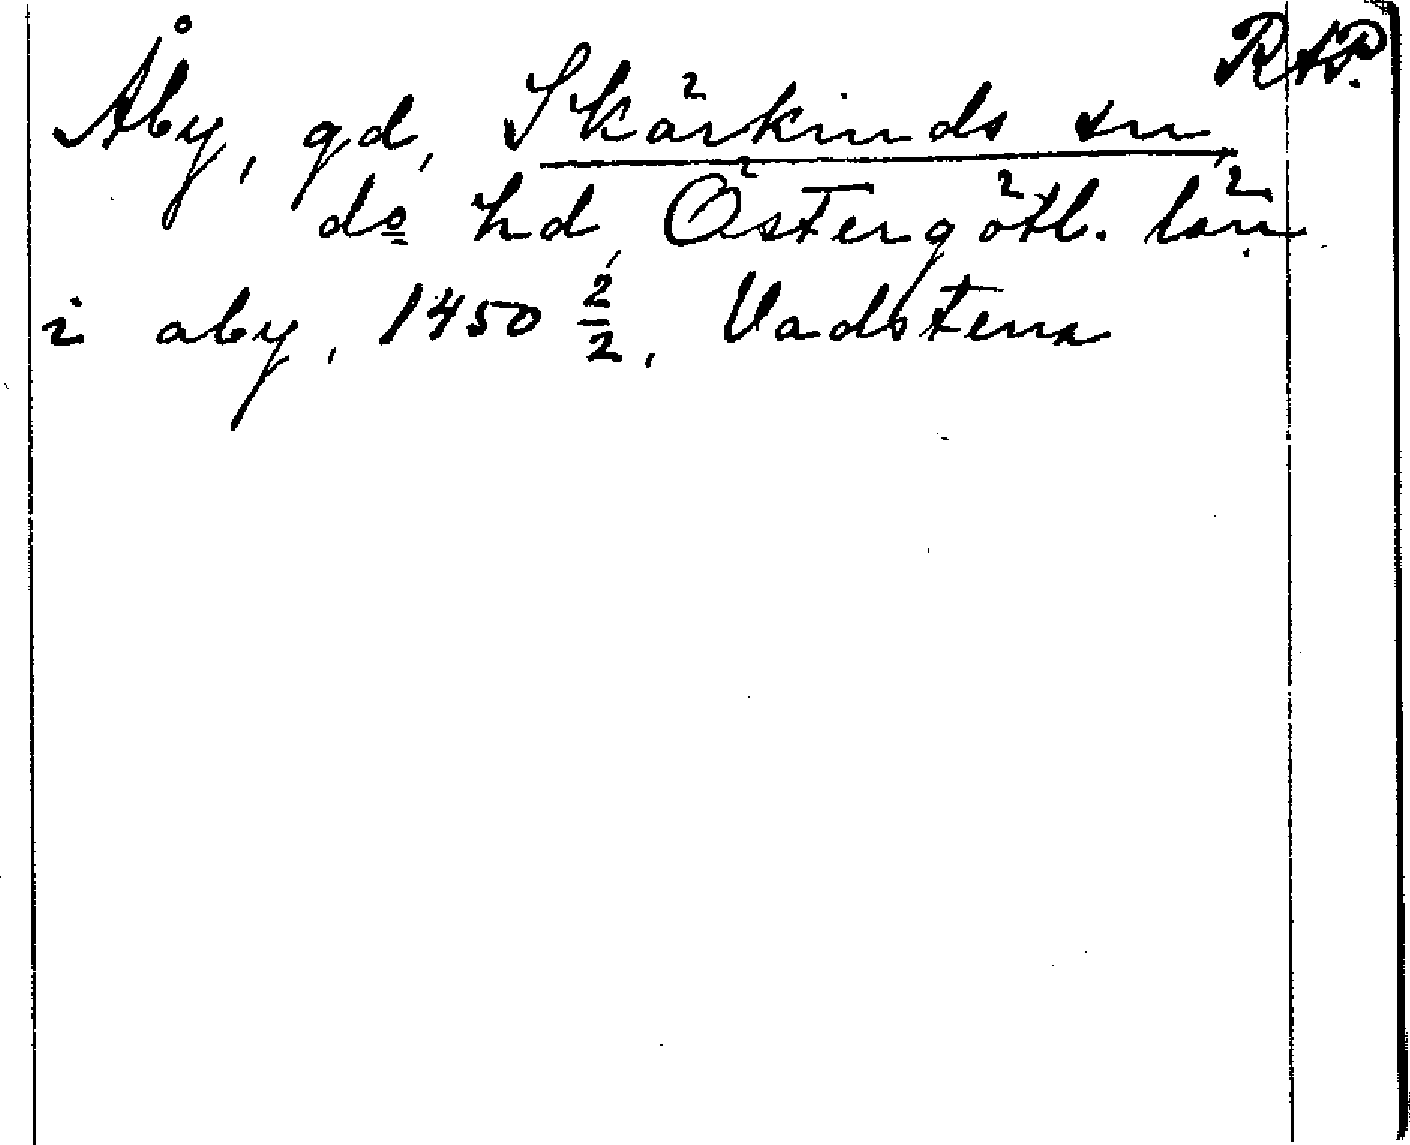 RAP.
Åby, gd, Skärkinds sn,
do hd, Östergötl. län
i aby, 1450 2/2, Vadstena